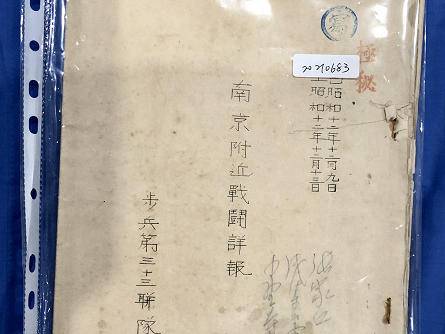 極秘
20210683
自昭和十二年十二月九日
至昭和十二年十二月十三日
南京附近戰鬪詳報
步兵第三十三聯隊